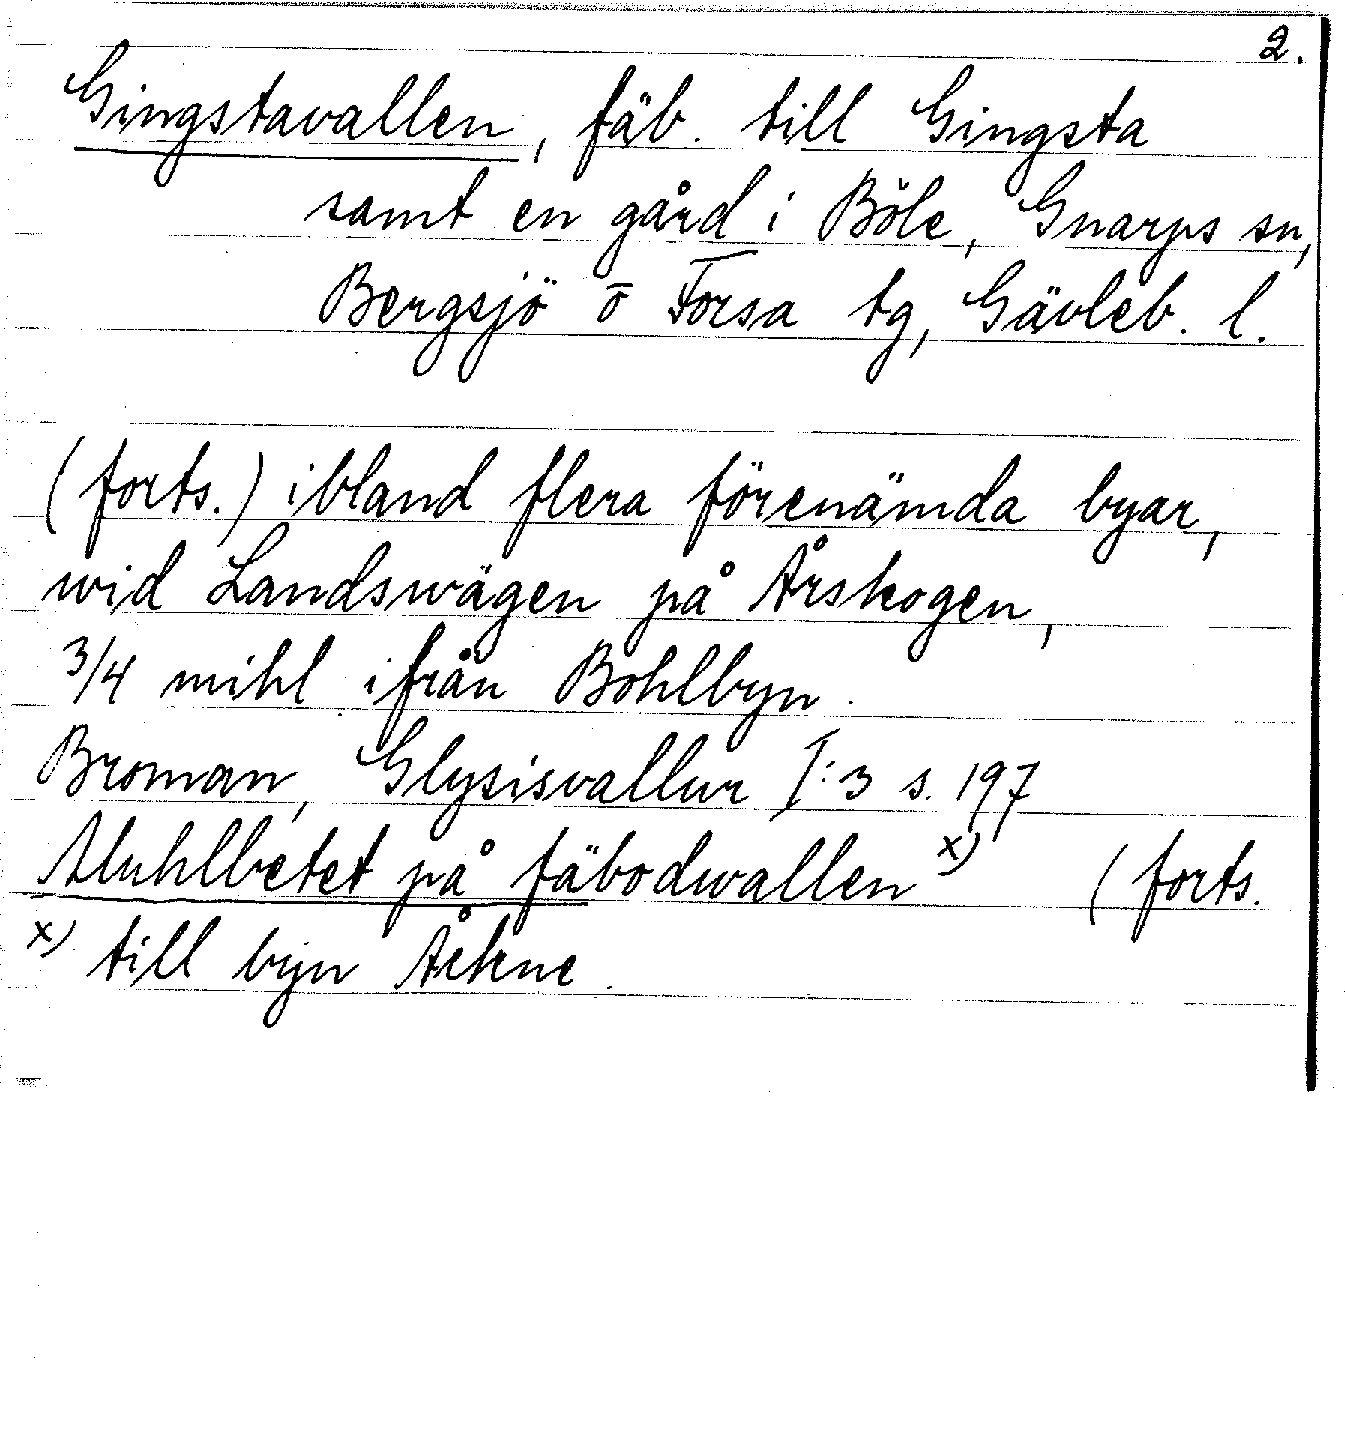 2.
Gingstavallen, fäb. till Gingsta
samt en gård i Böle, Gnarps sn,
Bergsjö o Forsa tg, Gävleb. l.
(forts.) ibland flera förenämda byar,
wid Landswägen på Årskogen,
3/4 mihl ifrån Bohlbyn.
Broman, Glysisvallur I:3 s. 197
Muhlbetet på fäbodwallen x) (forts.
x) till byn Åckne.